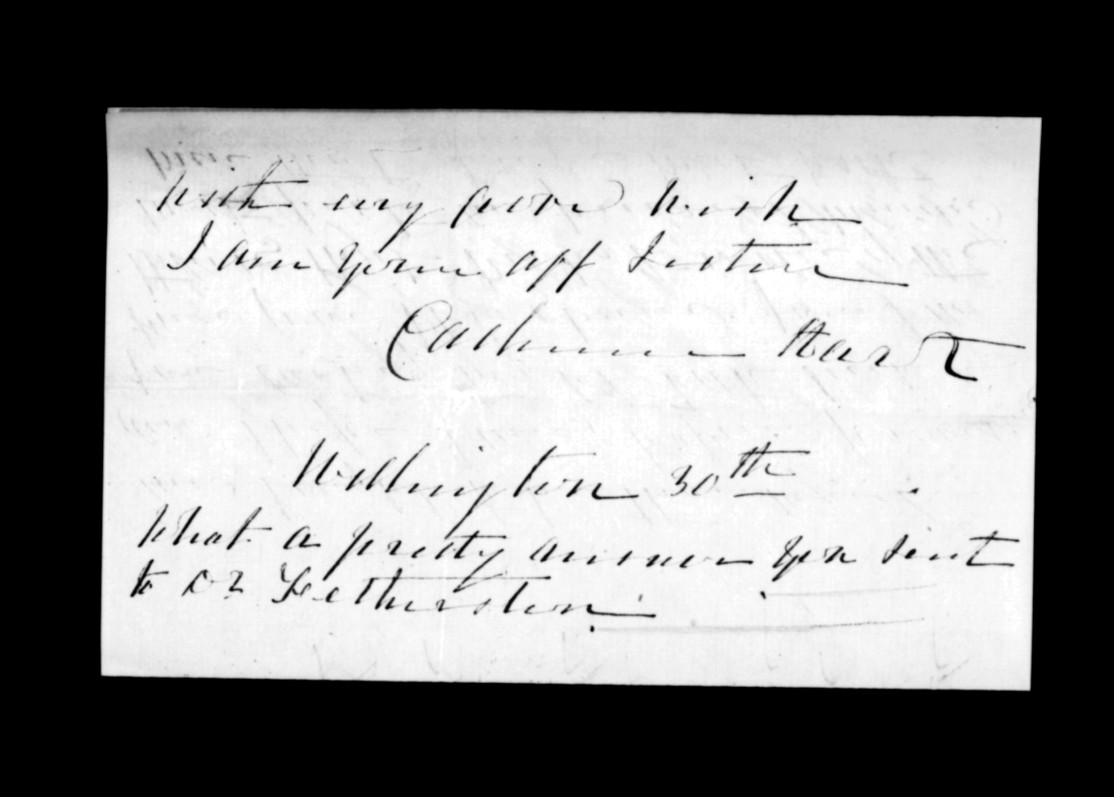 With my good wish
I am your aff Sister
Catherine Hart
Wellington 30th
What a pretty answer you sent
to Dr Fetherston